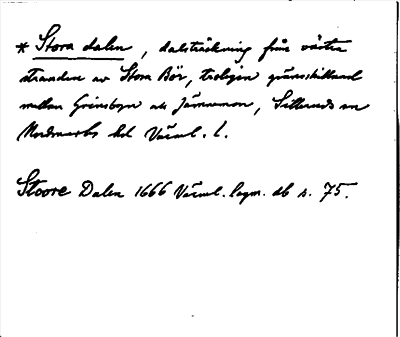 * Stora dalen, dalsträckning från västra
stranden av Stora Bör, troligen gränsskillnad
mellan Grinsbyn och Jämvmon, Sillerud sn
Nordmarks hd Värml. l.
Stoore Dalen 1666 Värml. lagm. db s. 75.